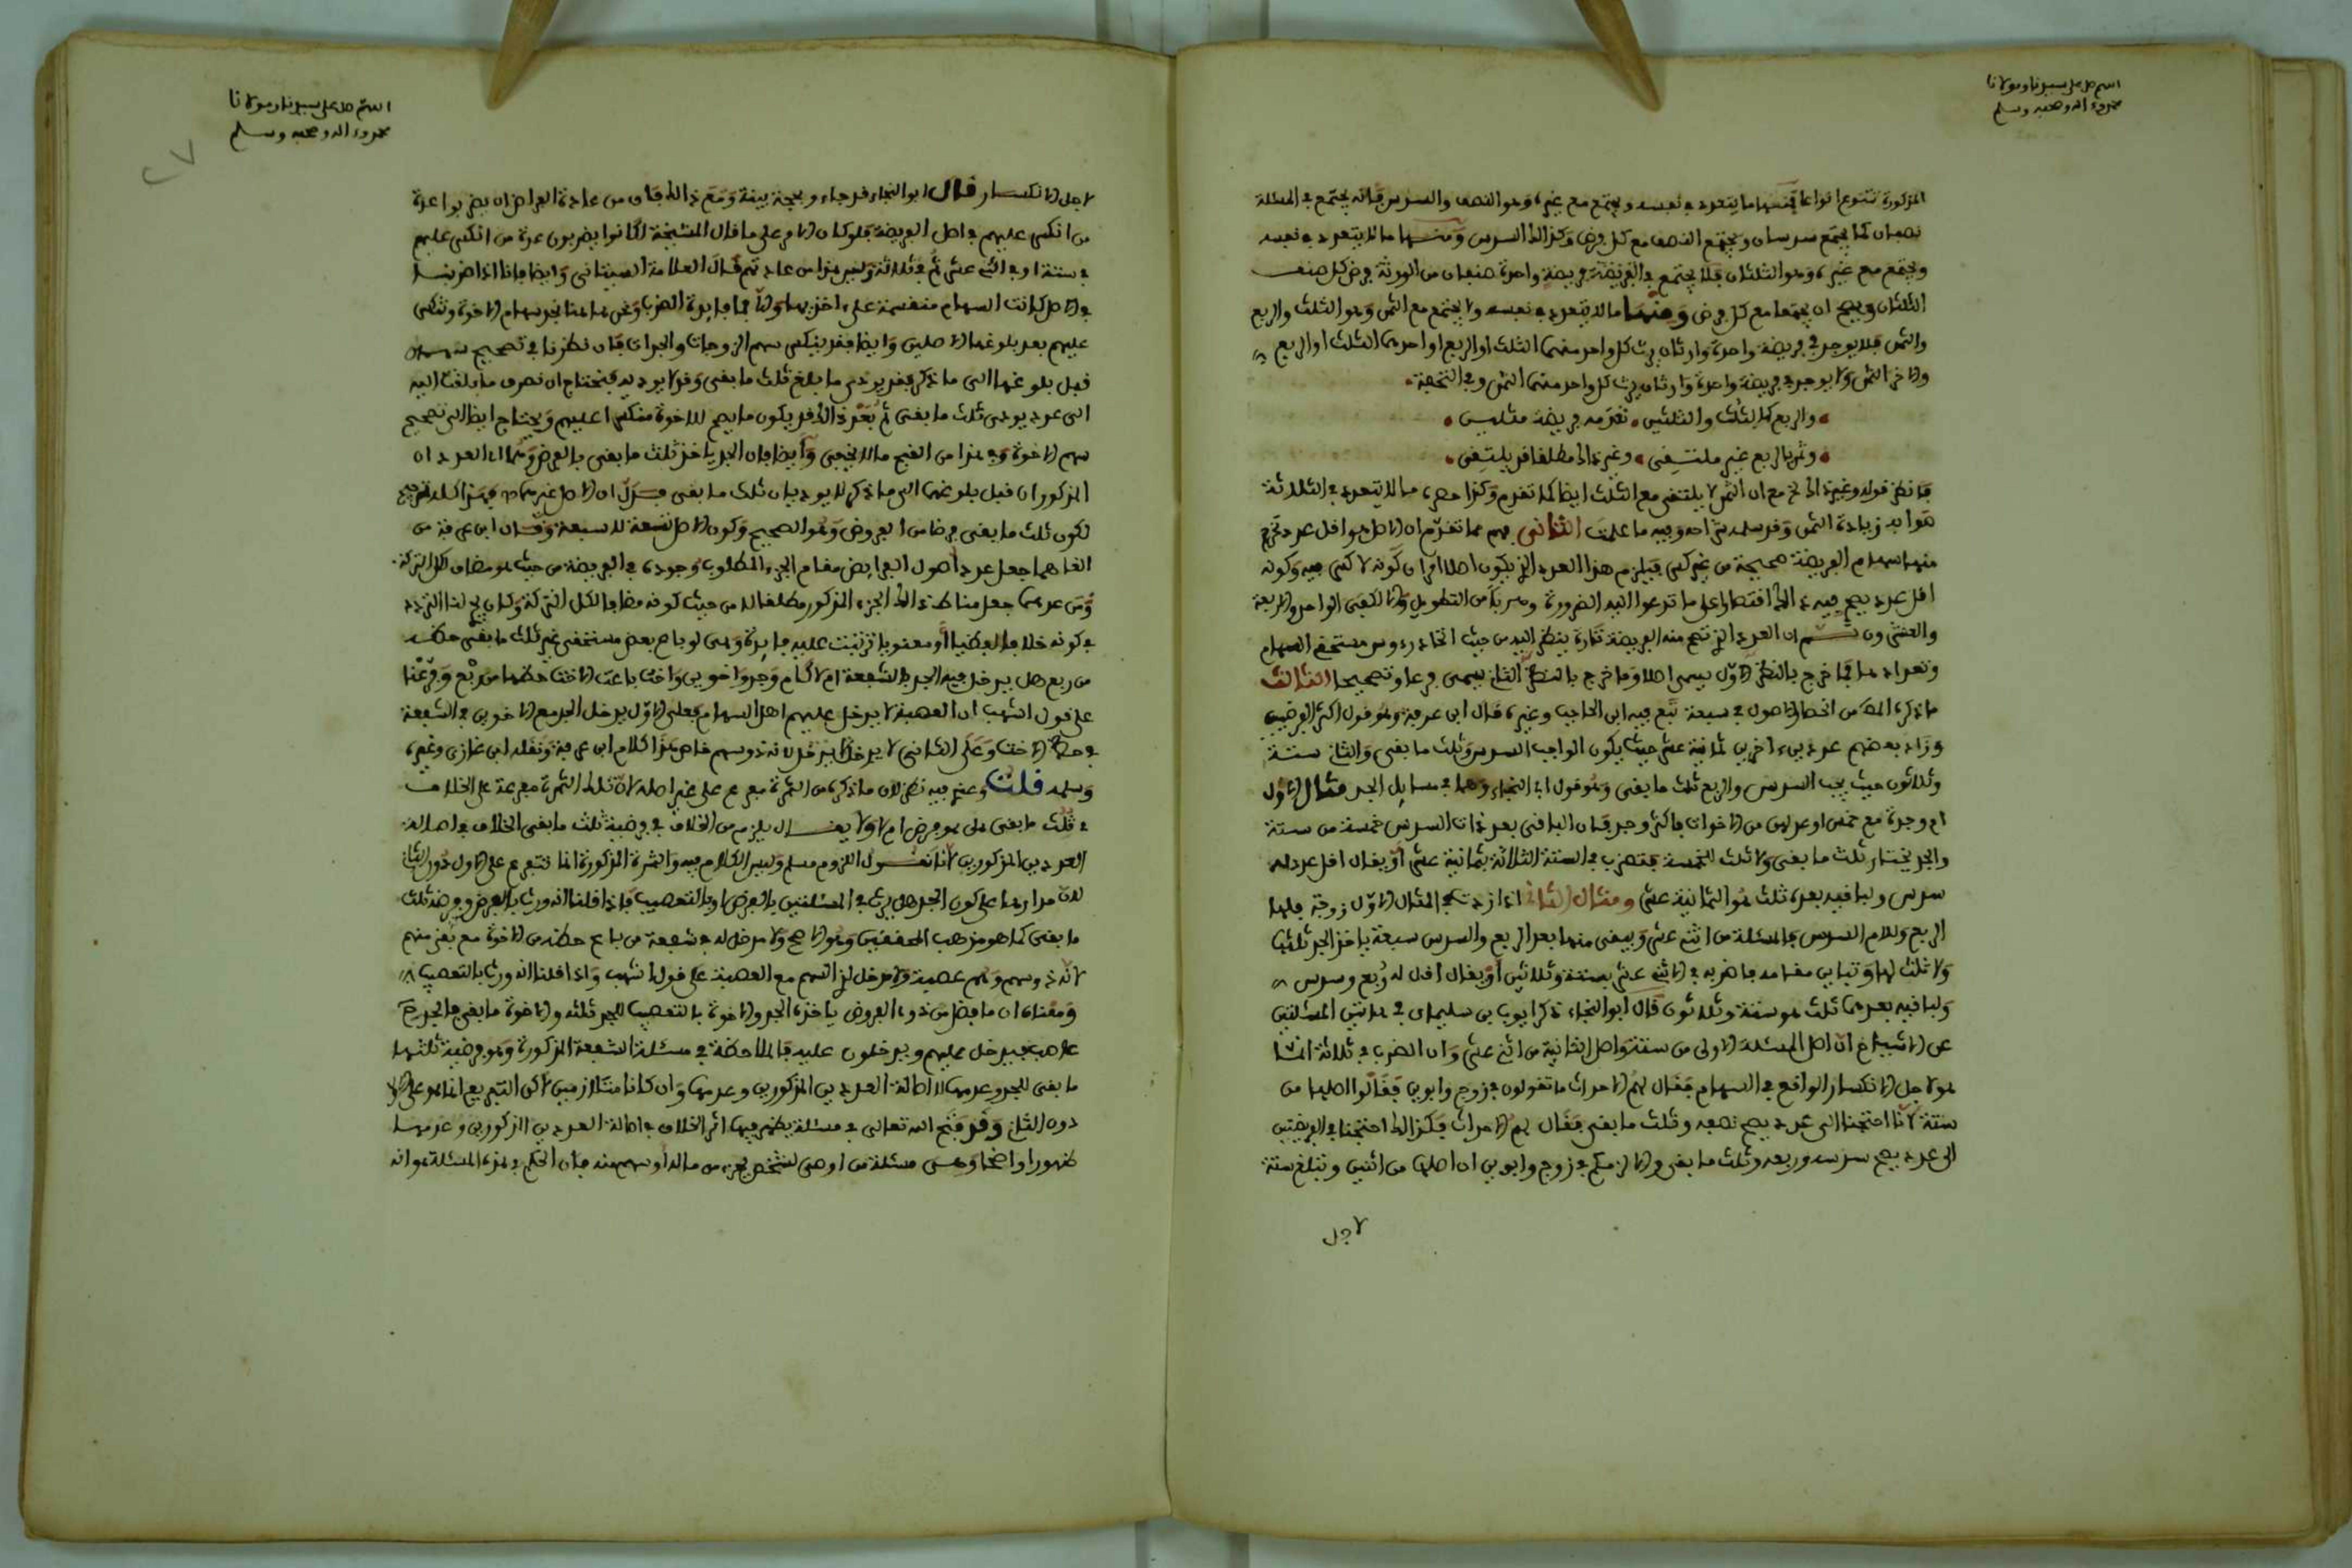 اللهم صل على سيدنا ومولانا
محمد وءاله وصحبه وسلم
المذكورة تتنوع انواعا فمنها ما يتعدد في نفسه ويجتمع مع غيره وهو النصف والسدس فانه يجتمع في المسئلة
نصفان كما يجتمع سدسان ويجتمع النصف مع كل فرض وكذلك السدس ومنها ما لا يتعدد في نفسه
ويجتمع مع غيره وهو الثلثان فلا يجتمع في الفريضة فريضة واحدة صنفان من الورثة فرض كل صنف
الثلثان ويصح ان يجتمعا مع كل فرض ومنها ما لا يتعدد في نفسه ولا يجتمع مع الثمن وهو الثلث والربع
والثمن فلا يوجد في فريضة واحدة وارثان يرث كل واحد منهما الثلث او الربع او احدهما الثلث او الربع
والاخر الثمن ولا يوجد في فريضة واحدة وارثان يرث كل واحد منهما الثمن وفي التحفة
والربع كالثلث والثلثين تعدمه فريضة مثلين
وثمن بالربع غير ملتقى وغير ذلك مطلقا قد يلتقى
فانظر قوله وغير ذلك الخ مع ان الثمن لا يلتقى مع الثلث ايضا كما تقدم وكذا حصره ما لا يتعدد في الثلاثة
صوابه زيادة الثمن وقد سلمه شراحه وفيه ما علمت الثاني فهم مما تقدم ان الاصل هو اقل عدد تخرج
منه سهام الفريضة صحيحة من غير كسر فيلزم هذا العدد الذي يكون اصلا امران كونه لا كسر فيه وكونه
اقل عدد يصح فيه ذلك اقتصارا على ما تدعوا اليه الضرورة وهربا من التطويل والا لكفى الواحد والاربعة
والعشرون ثم ان العدد الذي تصح منه الفريضة تارة ينظر اليه من حيث اتحاد رءوس مستحقي السهام
وتعدادها فما خرج بالنظر الاول يسمى اصلا وما خرج بالنظر الثاني يسمى فرعا وتصحيحا الثالث
ما ذكره المص من انحصار الاصول في سبعة تبع فيه ابن الحاجب وغيره قال ابن عرفة وهو قول اكثر الفرضيين
وزاد بعضهم عددين ءاخرين ثمانية عشر حيث يكون الواجب السدس وثلث ما بقى والثاني ستة
وثلاثون حيث يجب السدس والربع وثلث ما بقى وهو قول ابي النجاء وهما في مسايل الجد مثال الاول
ام وجدة مع خمس او عدلهن من الاخوات فاكثر وجد فان الباقي بعد ذات السدس خمسة من ستة
والجد يختار ثلث ما بقى ولا ثلث للخمسة فتضرب في الستة الثلاثة بثمانية عشر او يقال اقل عدد له
سدس ولباقيه بعده ثلث هو الثمانية عشر ومثال الثاني اذا زدت في المثال الاول زوجة فلها
الربع وللام السدس فالمسئلة من اثنى عشر ويبقى منها بعد الربع والسدس سبعة ياخذ الجد ثلثها
ولا ثلث لها وتباين مقامه فاضربه في الاثنى عشر بستة وثلاثين او يقال اقل له ربع وسدس
ولباقيه بعدهما ثلث هو ستة وثلاثون قال ابو النجاء ذكر ايوب بن سليمان في هاتين المسئلتين
عن الاشياخ ان اصل المسئلة الاولى من ستة واصل الثانية من اثنى عشر وان الضرب في ثلاثة انما
هو لاجل الانكسار الواقع في السهام فقال لهم الاحداث ما تقولون في زوج وابوين فقالوا اصلها من
ستة لانا احتجنا الى عدد يصح نصفه وثلث ما بقى فقال لهم الاحداث فكذلك احتجنا في الفريضتين
الى عدد يصح سدسه وربعه وثلث ما بقى والا لزمكم في زوج وابوين ان اصلها من اثنين وتبلغ ستة
لاجل
اللهم صل على سيدنا ومولانا
محمد وءاله وصحبه وسلم
٢٧
لاجل الانكسار قال ابو النجاء فرجاء وبحجة بينة ومع ذلك فان من عادة الفراض ان يضربوا عدة
من انكسر عليهم في اصل الفريضة فلو كان الامر على ما قال المشيخة لكانوا يضربون عدة من انكسر عليهم
في ستة او في اثنى عشر ثم في ثلاثة وليس هذا من عادتهم قال العلامة السيتاني وايضا فانا اذا ضربنا
في الاصل كانت السهام منقسمة على ءاخذيها والا فما فايدة الضرب ونحن هاهنا نجد سهام الاخوة وتنكسر
عليهم بعد بلوغها الاصلين وايضا فقد ينكسر سهم الزوجات والجدات فان نظرنا في تصحيح سهمهن
قبل بلوغها الى ما ذكر فقد يودى ما يبلغ ثلث ما بقى وقد لا يوديه فنحتاج ان نصرف ما بلغت اليه
الى عدد يودى ثلث ما بقى ثم بعد ذلك قد يكون ما يصح للاخوة منكسرا عليهم ونحتاج ايضا الى تصحيح
سهم الاخوة وفي هذا من القبح ما لا يخفى وايضا فان الجد ياخذ ثلث ما بقى بالفرض وهما اي العددان
المذكوران قبل بلوغهما الى ما ذكر لا يوديان ثلث ما بقى فدل ان الاصل غيرهما فهذا كله ترجيح
لكون ثلث ما بقى فرضا من الفروض وهو الصحيح وكون الاصل تسعة لا سبعة وقال ابن عرفة من
الغاهما جعل عدد اصول الفرايض مقام الجزء المطلوب وجوده في الفريضة من حيث هو مضاف لكل التركة
ومن عدهما جعل مناط ذلك الجزء المذكور مطلقا لا من حيث كونه مضافا لكل التركة وكان يجري لنا التردد
في كونه خلافا لفظيا او معنويا ترتبت عليه فايدة وهى لو باع بعض مستحقى غير ثلث ما بقى حظه
من ربع هل يدخل فيه الجد بالشفعة ام لا كام وجد واخوين واخت باعت الاخت حظها من ربع وفرعنا
على قول اشهب ان العصبة لا يدخل عليهم اهل السهام فعلى الاول يدخل الجد مع الاخوين في الشفعة
في حظ الاخت وعلى الثاني لا يدخل لانه ذو سهم خاص هذا كلام ابن عرفة ونقله ابن غازي وغيره
وسلمه قلت وغيره فيه نظر لان ما ذكره من الثمرة مفرع على غير اصله لان تلك الثمرة مفرعة على الخلاف
في ثلث ما بقى هل هو فرض ام لا ولا يقال يلزم من الخلاف في فرضية ثلث ما بقى الخلاف في اصالة
العددين المذكورين لانا نقول اللزوم مسلم وليس الكلام فيه والثمرة المذكورة انما تتفرع على الاول دون الثاني
لان مدارها على كون الجد هل يرث في المسئلتين بالفرض او بالتعصيب فاذا قلنا انه ورث بالفرض وفرضه ثلث
ما بقى كما هو مذهب المحققين وهو الاصح ولا مدخل له في شفعة من باع حظه من الاخوة مع بقي منهم
لانه ذو سهم وهم عصبة ولا مدخل لذي السهم مع العصبة على قول اشهب واذا قلنا انه ورث بالتعصيب
ومعناه ان ما فضل من ذوى الفروض ياخذه الجد والاخوة بالتعصيب للجد ثلثه والاخوة ما بقى فالجد ح
عاصب فيدخل عليهم ويدخلون عليه فالملاحظة في مسئلة الشفعة المذكورة وهو فرضية ثلثها
ما بقى للجد وعدمها لا اصالة العددين المذكورين وعدمها وان كانا متلازمين لاكن التفريع انما هو على الاول
دون الثاني وقد فتح الله تعالى في مسئلة يظهر فيها اثر الخلاف في اصالة العددين المذكورين وعدمها
ظهورا واضحا وهى مسئلة من اوصى لشخص بجزء من ماله او سهم منه فان الحكم في هذه المسئلة هو انه